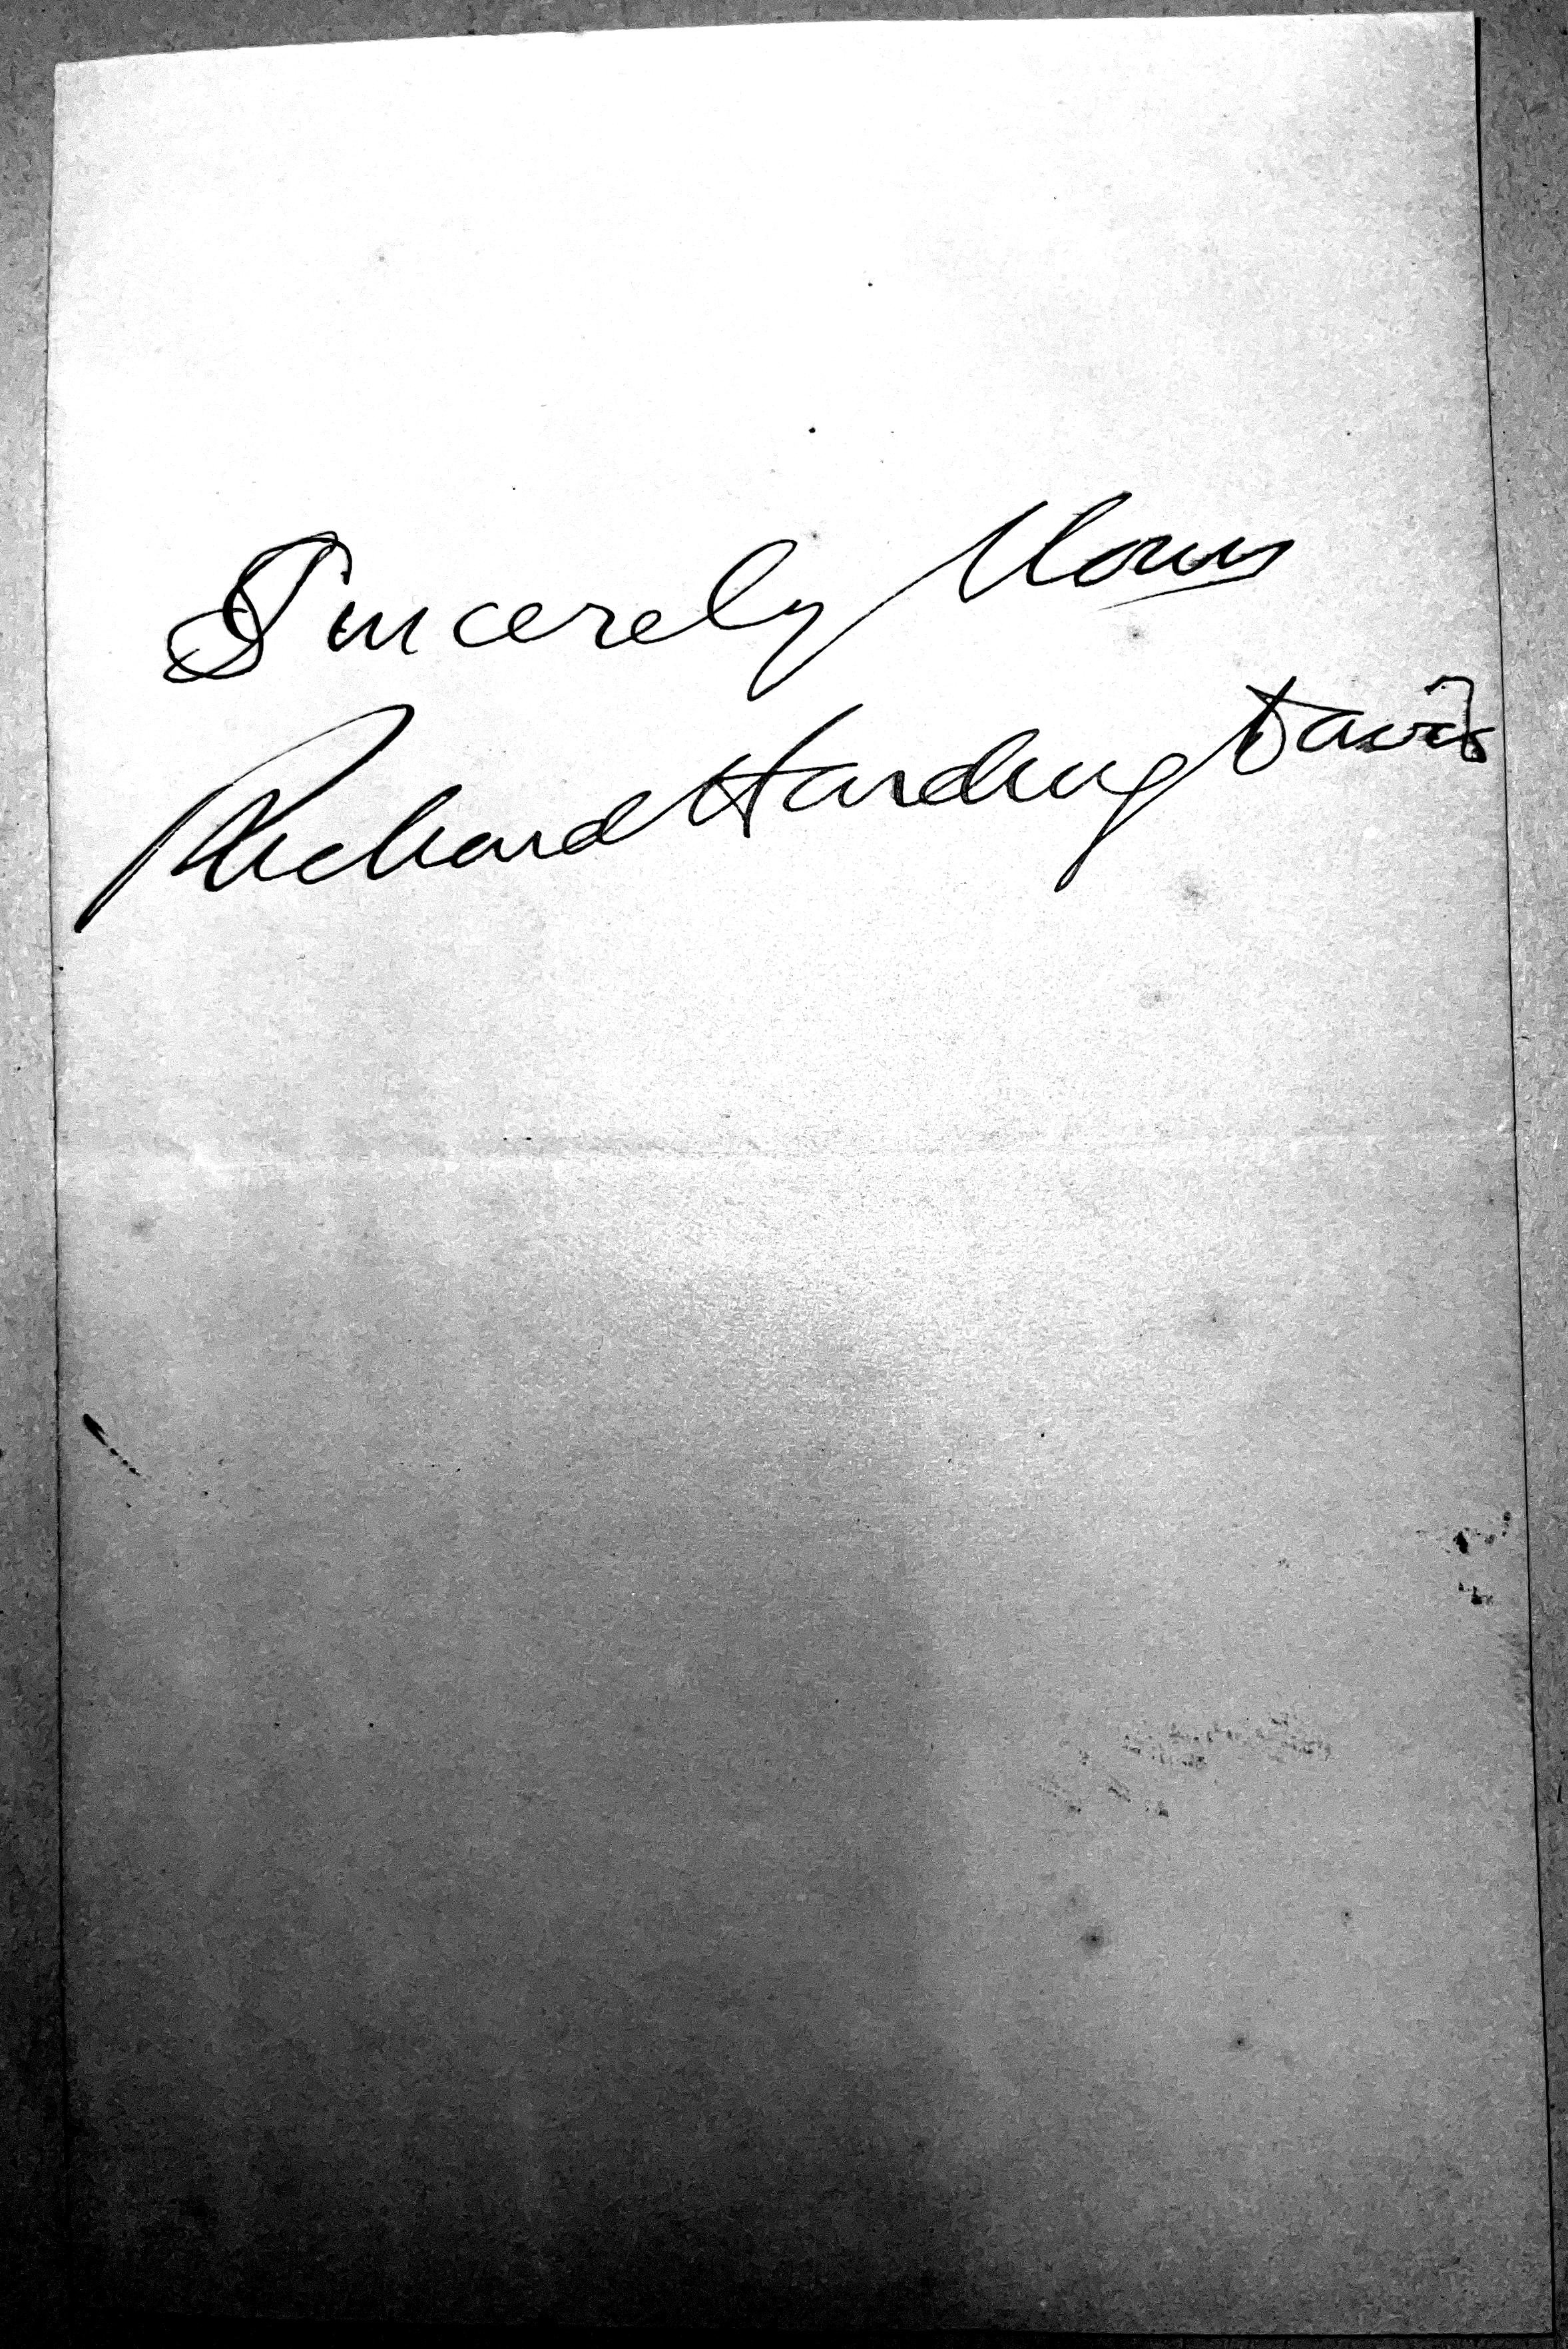 Sincerely Yours
Richard Harding Davis